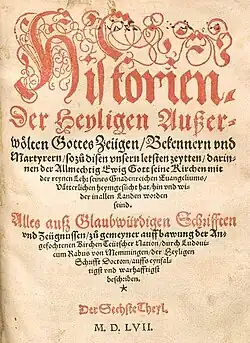 Historien.
Der Heyligen Außer-
wölten Gottes Zeügen/Bekennern vnd
Martyrern/so zů disen vnsern letsten zeytten/darin-
nen der Allmechtig Ewig Gott seine Kirchen mit
der reynen Lehr seines Gnadenreichen Euangeliums/
Vätterlichen heymgesůcht hat/hin vnd wi-
der in allen Landen worden
seind.
Alles auß Glaubwürdigen Schrifften
vnd Zeügnussen/zů gemeyner auffbawung der An-
gefochtenen Kirchen Teütscher Nation/durch Ludoui-
cum Rabus von Memmingen/der Heyligen
Schrifft Doctorn/auffs eynfal-
tigst vnd warhafftigst
beschriben.
Der Sechste Theyl.
M. D. LVII.